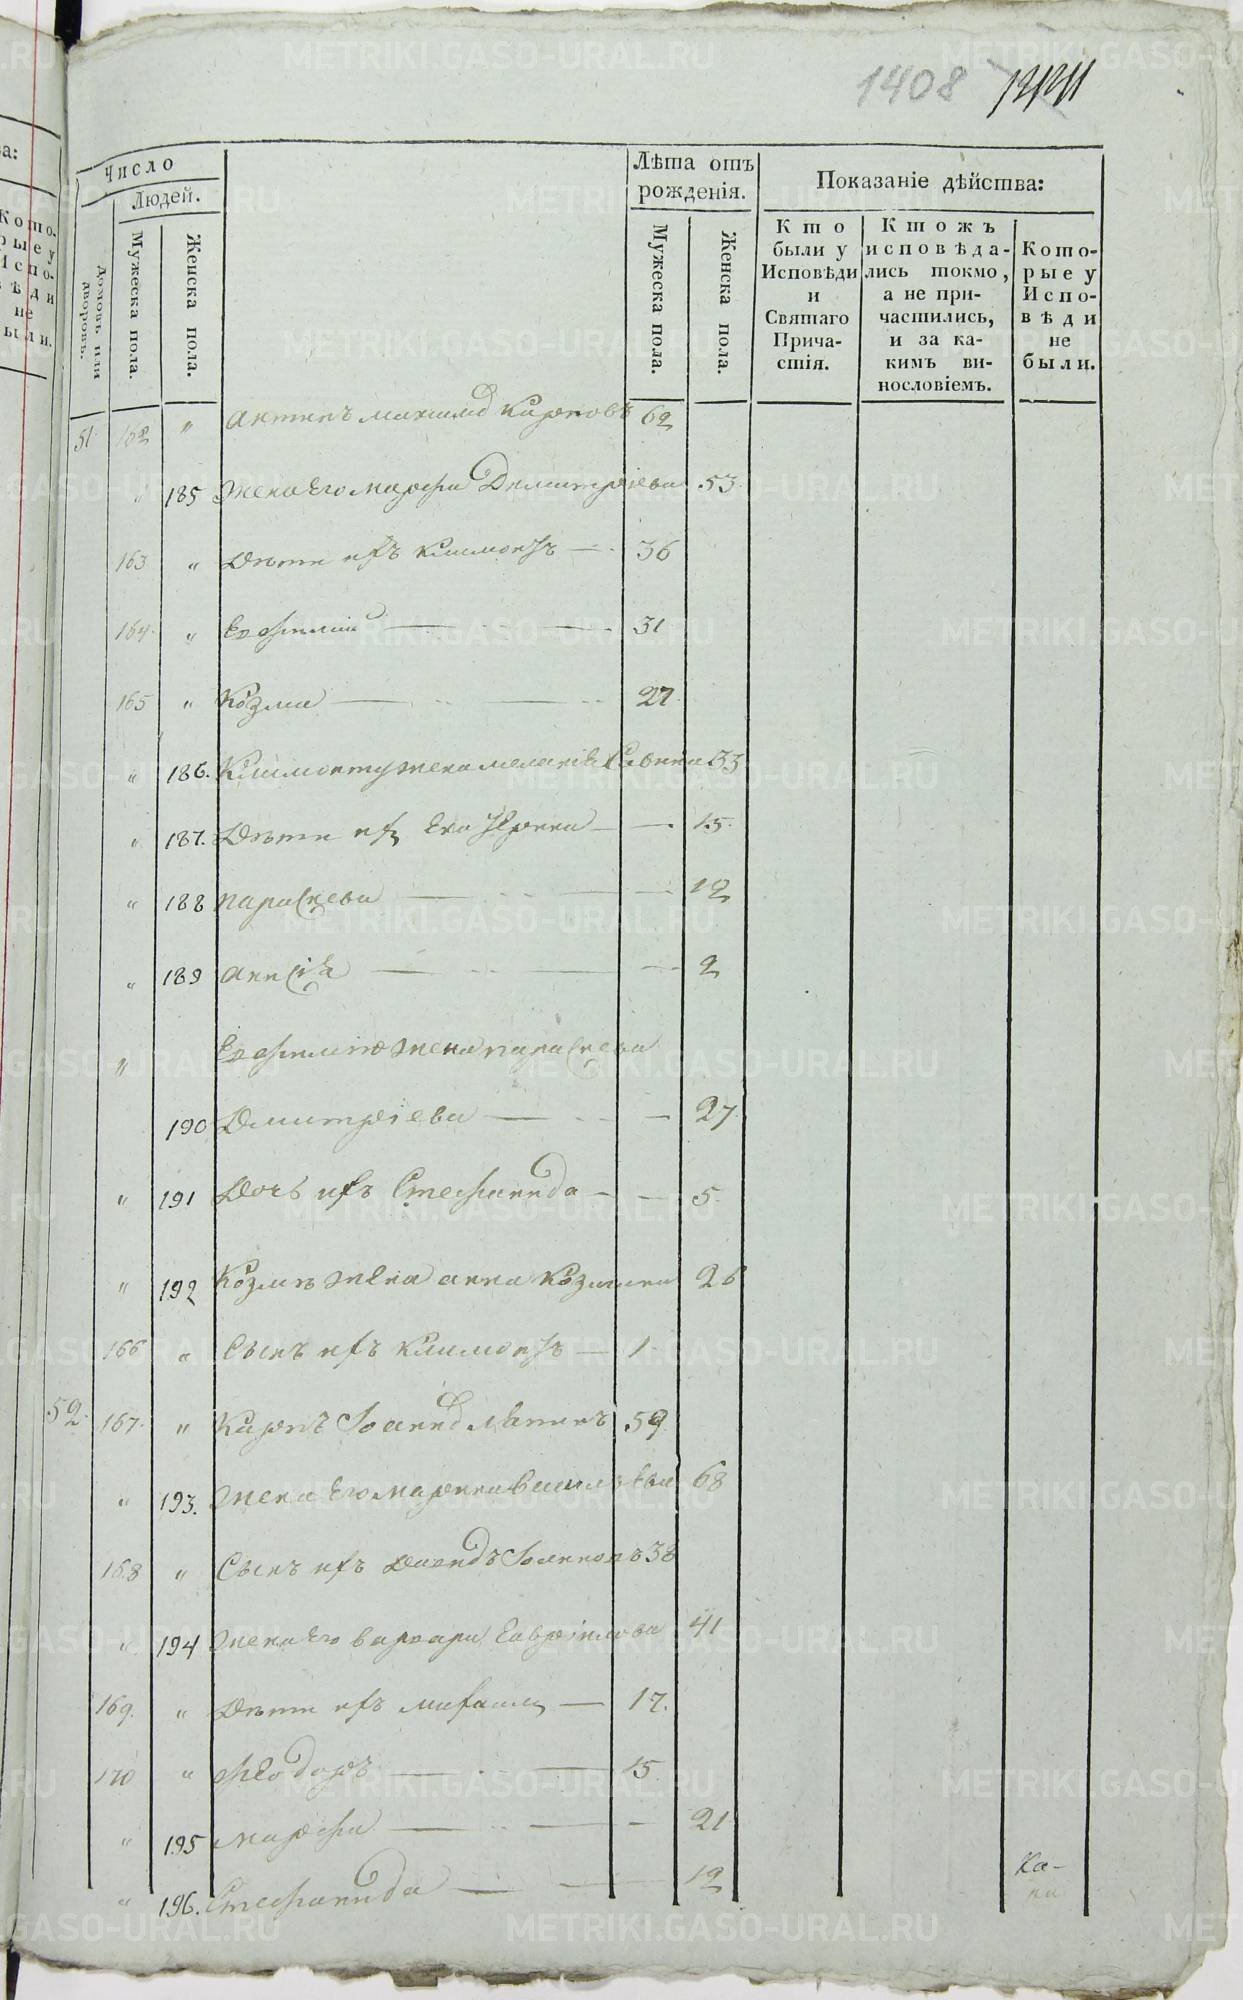 1408
Число
Людей.
Домовъ или дворовъ.
Мужеска пола.
Женска пола.
Лѣта отъ рожденія.
Мужеска пола.
Женска пола.
Показаніе дѣйства:
Кто были у Исповѣди и Святаго Причастія.
Ктожъ исповѣдались токмо, а не причастились, и за какимъ винословіемъ.
Которые у Исповѣди не были.
51 162 " Антипъ Карповъ 62
" 185 Жена его марфа Димитріева 53
163 " Дѣти ихъ климонтъ 36
164 " Евфимій 31
165 " Козма 27
" 186. Климонту жена меланія 33
" 187. Дѣти ихъ 15
" 188 параскева 12
" 189 анисія 2
" Евфимію жена параскева
190 Дмитріева 27
" 191 Дочь ихъ Стефанида 5
" 192 Козмѣ жена анна Козмина 26
166 " Сынъ ихъ климонтъ 1
52 167 " Карпъ Іоанновъ 59
" 193. Жена его марина васильева 68
168 " Сынъ ихъ давидъ Іоанновъ 38
" 194 Жена его варвара Гавріилова 41
169. " Дѣти ихъ михаилъ 17.
170 " Ѳеодоръ 15
" 195 марфа 21
" 196. Стефанида 12
METRIKI.GASO-URAL.RU